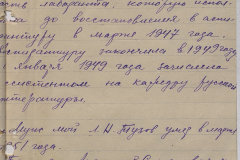 лаборанта, которую испол-
до восстановления в аспи-
рантуру в марте 1947 года.
аспирантуру закончила в 1949 году
января 1949 года зачислена
ассистентом на кафедру русской
литературы.
Муж мой Л Н Тузов умер в
51 года.